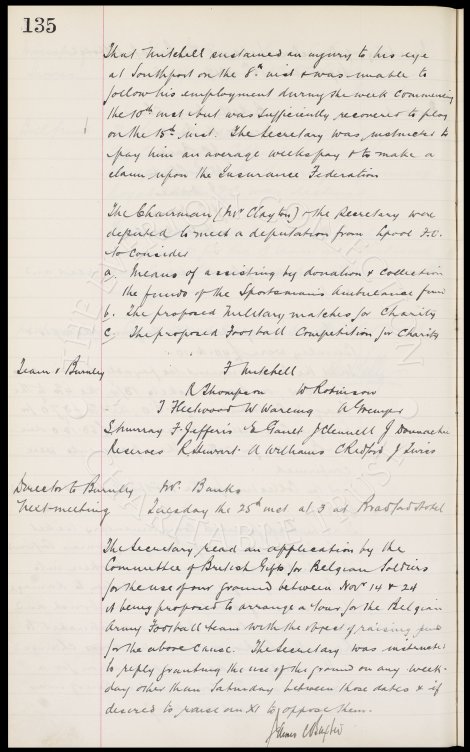 135
That Mitchell sustained an injury to his eye
at Southport on the 8th inst & was unable to
follow his employment during the week commencing
the 10th inst but was sufficiently recovered to play
on the 15th inst. The Secretary was instructed to
pay him an average weeks pay & to make a
claim upon the Insurance Federation
The Chairman (Mr Clayton) & the Secretary were
deputed to meet a deputation from Lpool F.C.
to consider
a. Means of assisting by donation & collection
the funds of the Sportsmans Ambulance fund
b. The proposed Military matches for Charity
c. The proposed Football Competition for Charity
Team v Burnley F Mitchell
R Thompson W Robinson
T Fleetwood W Wareing A Grenyer
S Murray F Jefferis E Gault J Clennell J Donnachie
Reserves R Stewart A Williams C Redford J Lines
Director to Burnley Mr. Banks
Next meeting Tuesday the 25th inst at 3 at Bradford Hotel
The Secretary read an application by the
Committee of British Gifts for Belgian Soldiers
for the use of our ground between Novr 14 & 24
it being proposed to arrange a tour for the Belgian
Army Football team with the object of raising funds
for the above Cause. The Secretary was instructed
to reply granting the use of the ground on any week-
day other than Saturday between those dates & if
desired to raise an XI to oppose them.
James C Baxter